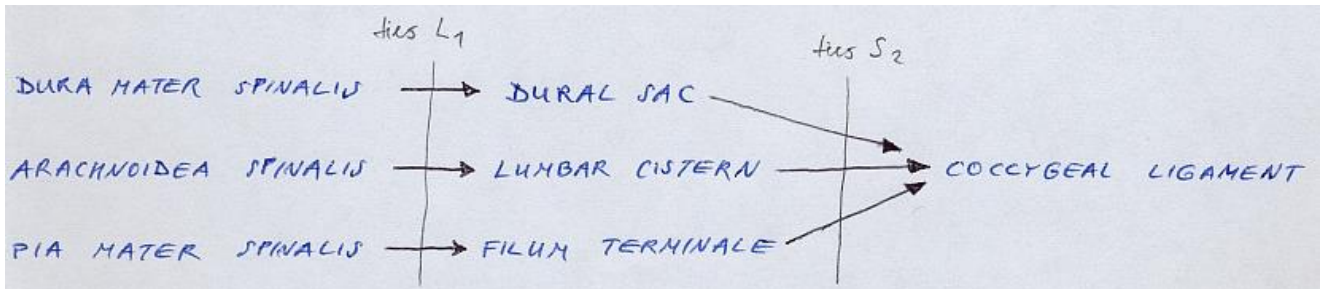 ties L1
ties S2
DURA MATER SPINALIS → DURAL SAC
ARACHNOIDEA SPINALIS → LUMBAR CISTERN → COCCYGEAL LIGAMENT
PIA MATER SPINALIS → FILUM TERMINALE